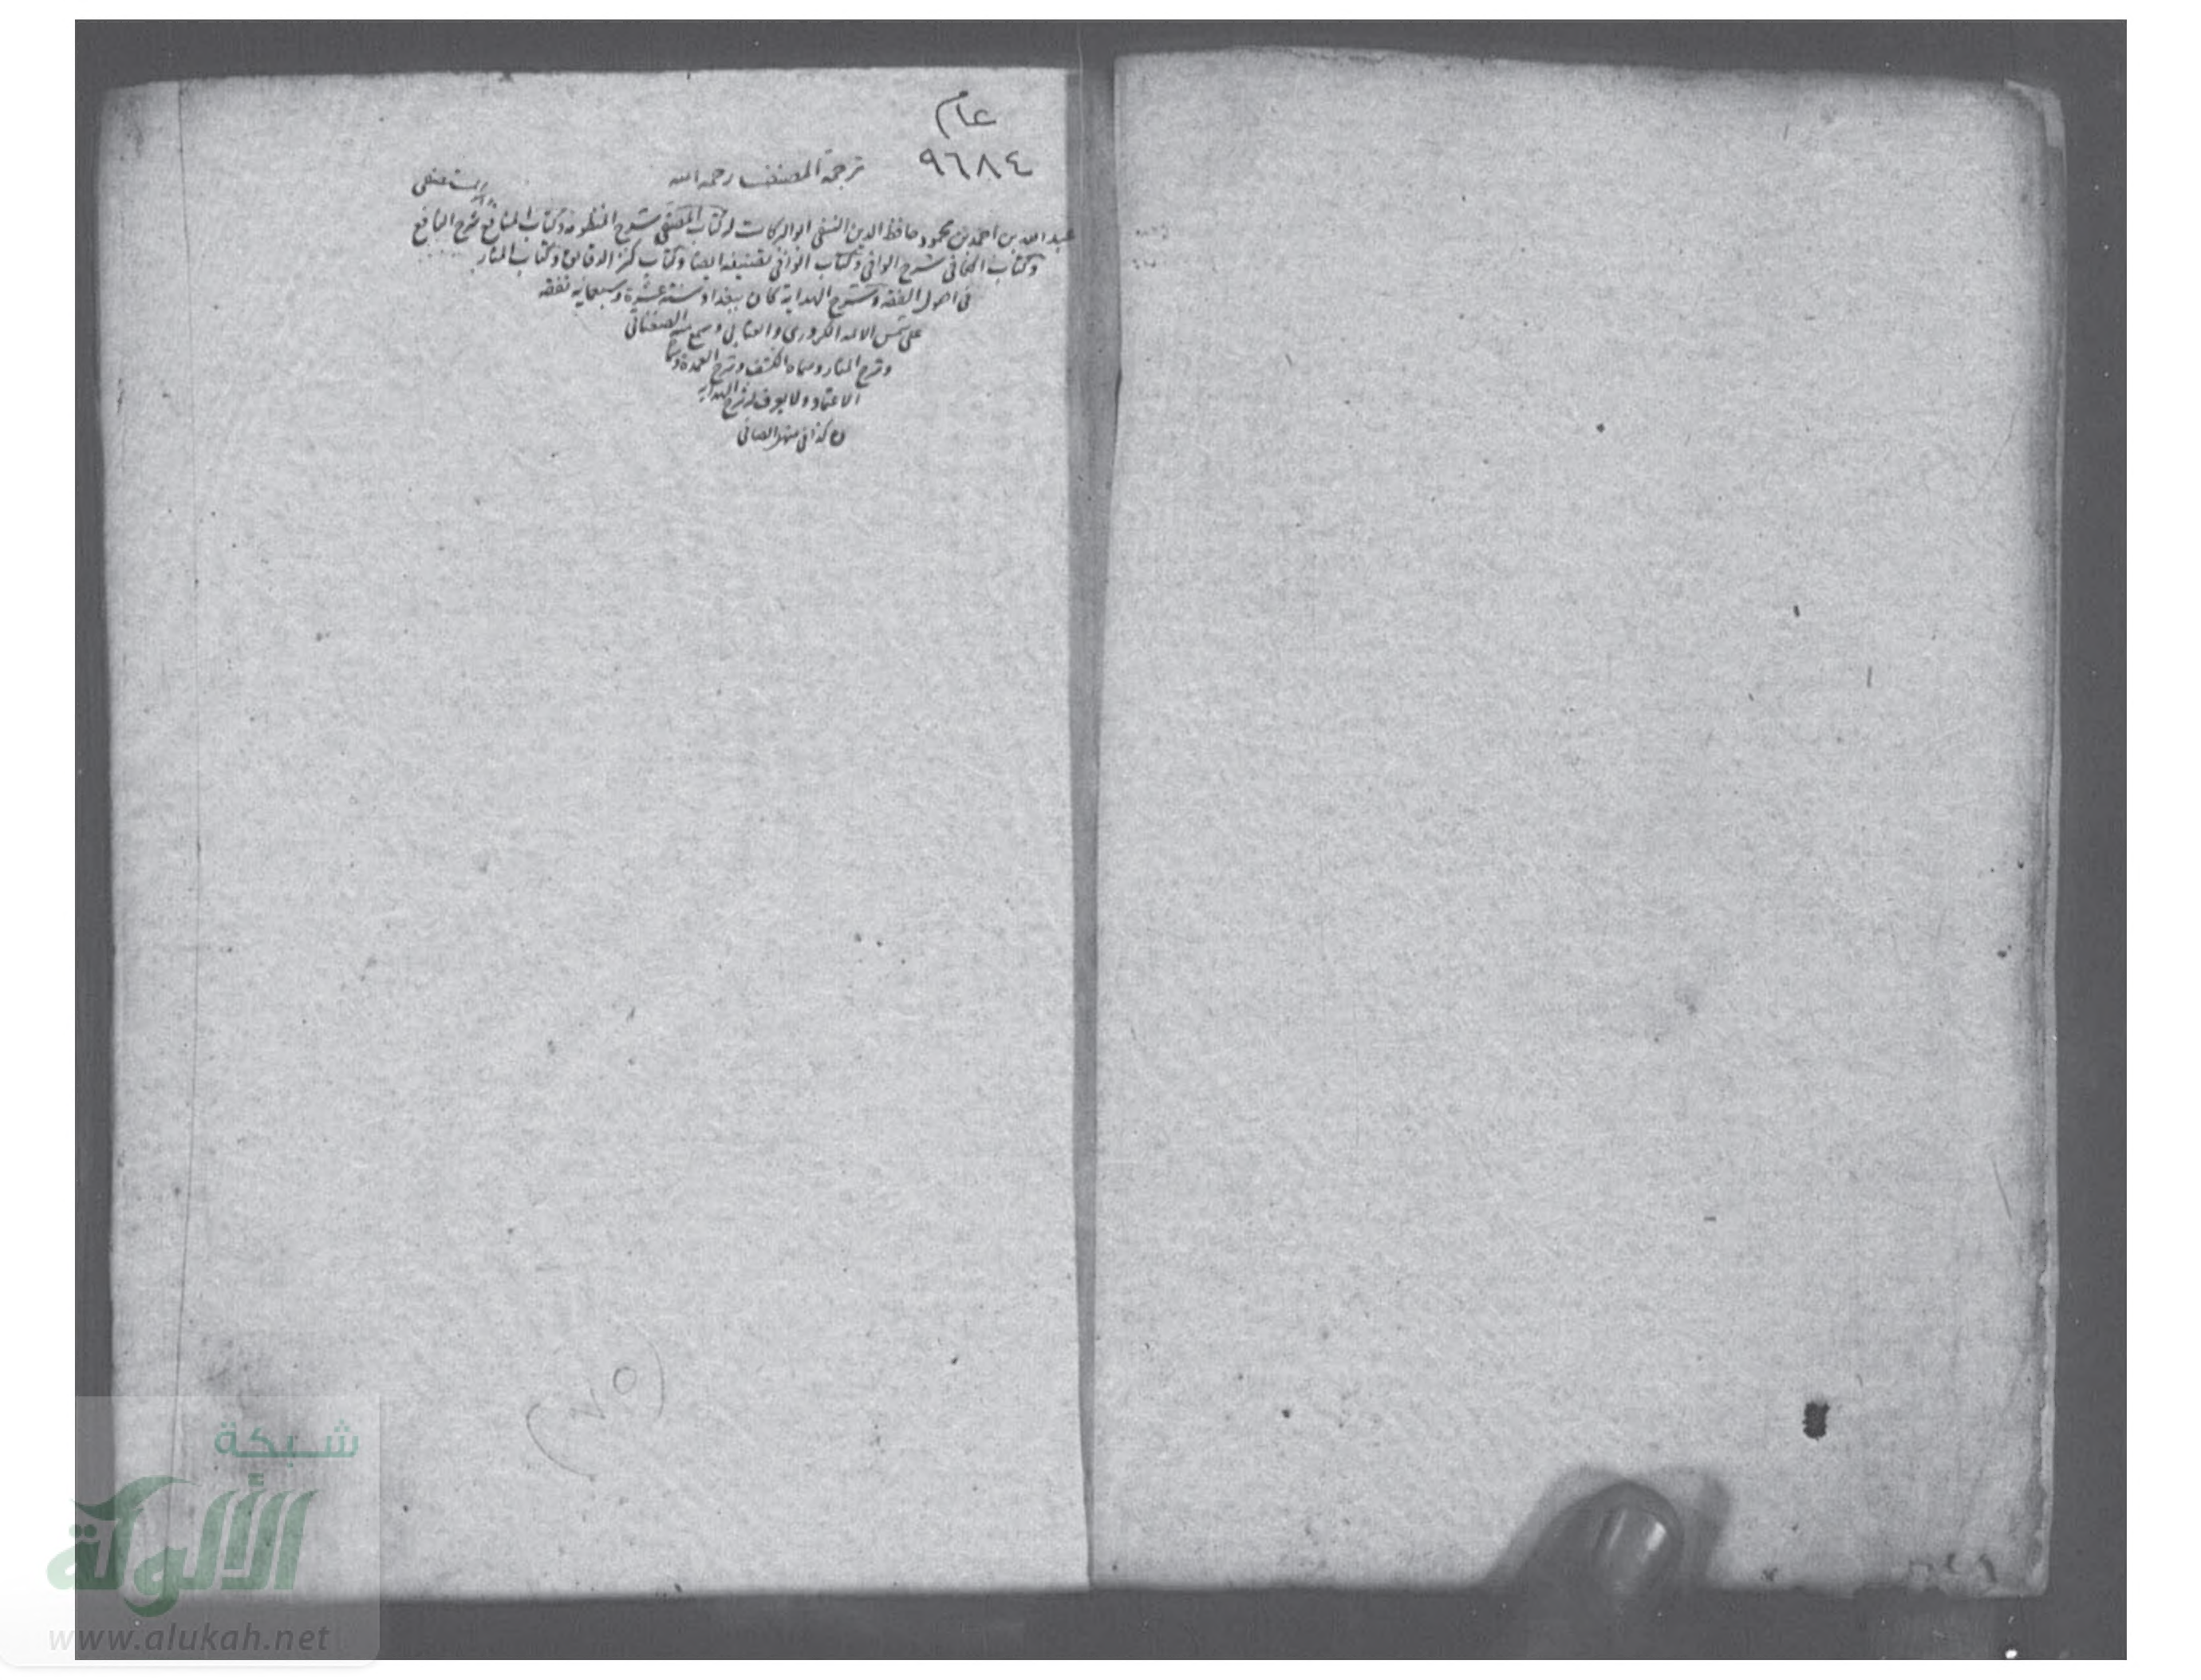 عام
٩٦٨٤
ترجمة المصنف رحمه الله
عبد الله بن احمد بن محمود حافظ الدين النسفى ابو البركات له كتاب المصفى شرح المنظومة وكتاب المنافع شرح النافع
وكتاب الكافى شرح الوافى وكتاب الوافى تصنيفه ايضا وكتاب كنز الدقائق وكتاب المنار
فى اصول الفقه وشرح الهداية كان ببغداد سنة عشرة وسبعمايه تفقه
على شمس الائمه الكردرى و العتابى وسمع منه الصغناقى
وشرح المنار وسماه الكشف وشرح العمدة وسماه
الاعتماد ولا يعرف له شرح الهدايه
كذا فى
(٧٥)
شبكة
الألوكة
www.alukah.net